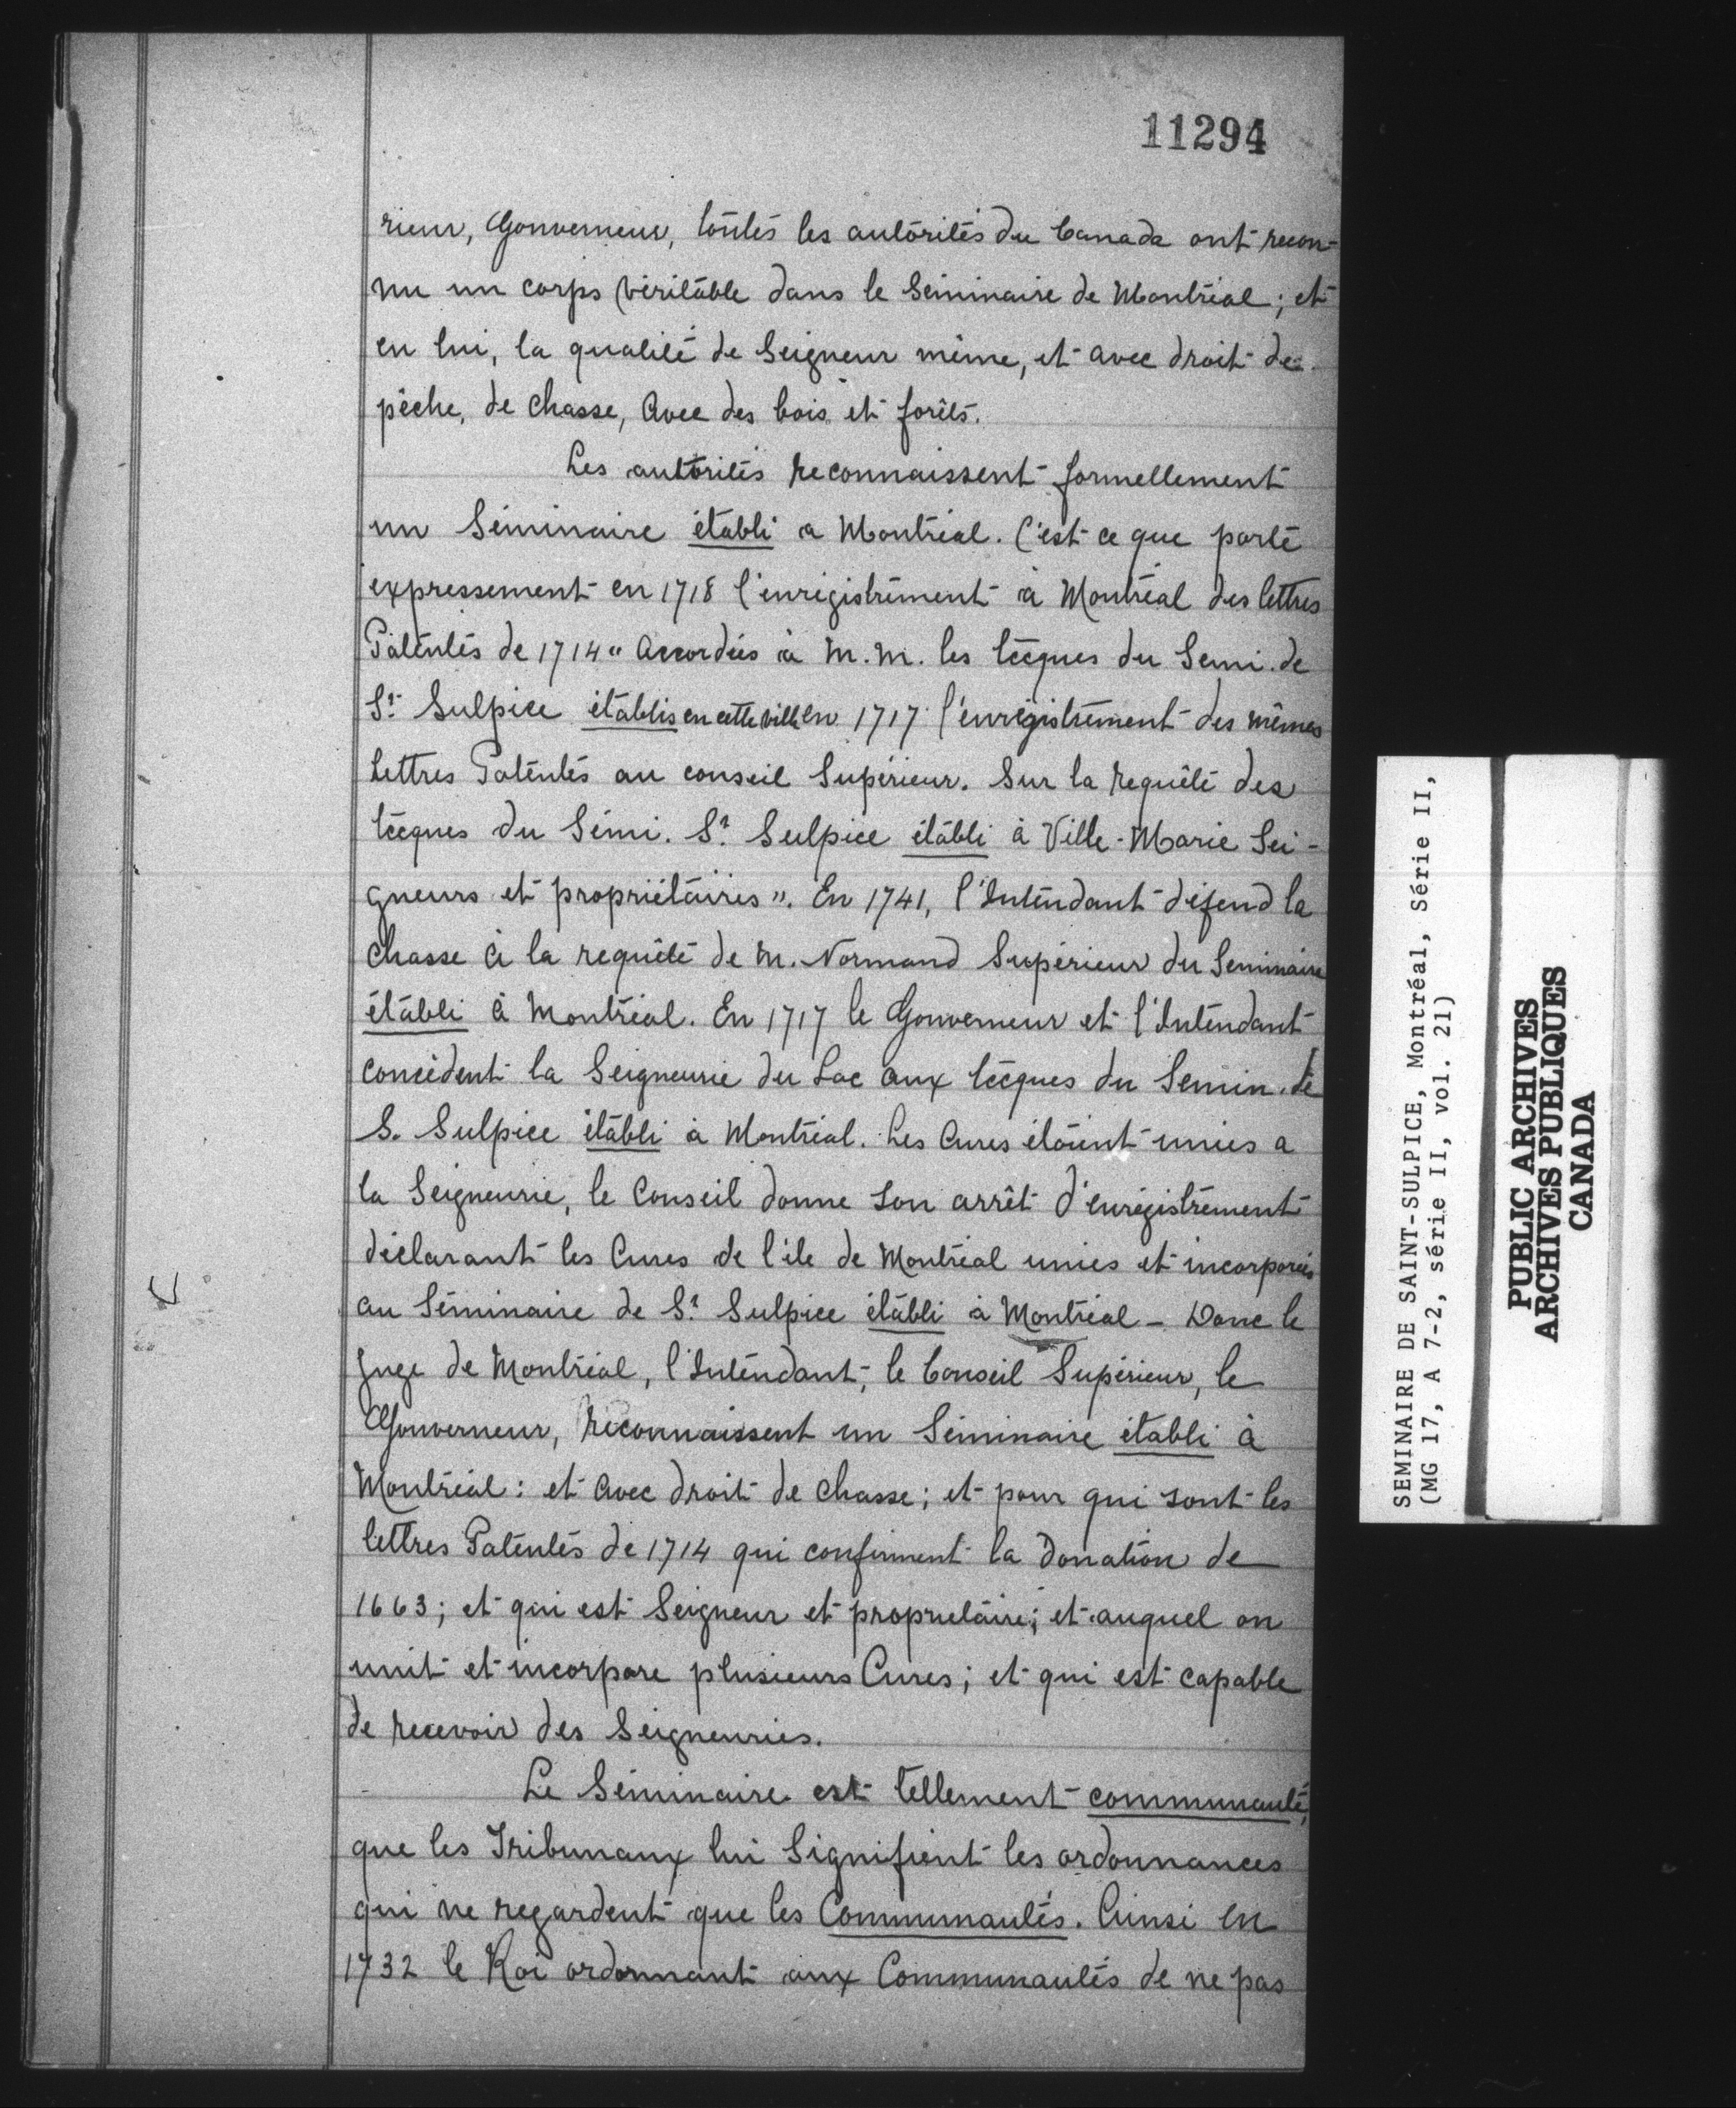 11294
rieur, Gouverneur, toutes les autorités du Canada ont recon-
nu un corps véritable dans le Séminaire de Montréal ; et
en lui, la qualité de Seigneur même, et avec droit de
pêche, de chasse, avec des bois et forêts.
Les autorités reconnaissent formellement
un Séminaire établi a Montréal. C'est ce que porte
expressement en 1718 l'enrégistrement à Montréal des lettres
Patentes de 1714 " accordées à M.M. les Eccques du Semi. de
St Sulpice établis en cette ville en 1717 l'enregistrement des mêmes
Lettres Patentes au conseil Supérieur. Sur la requête des
Eccques du Sémi. St Sulpice établi à Ville-Marie Sei-
gneurs et propriétaires ". En 1741, l'Intendant défend la
chasse à la requête de M. Normand Supérieur du Seminaire
établi à Montréal. En 1717 le Gouverneur et l'Intendant
concèdent la Seigneurie du Lac aux Eccques du Semin. de
S. Sulpice établi à Montréal. Les Cures étaient unies a
la Seigneurie, le Conseil donne son arrêt d'enrégistrement
déclarant les Cures de l'île de Montréal unies et incorporées
au Séminaire de St Sulpice établi à Montréal – Donc le
Juge de Montréal, l'Intendant, le Conseil Supérieur, le
Gouverneur, reconnaissent un Séminaire établi à
Montréal : et avec droit de chasse ; et pour qui sont les
lettres Patentes de 1714 qui confirment la Donation de
1663 ; et qui est Seigneur et propriétaire ; et auquel on
unit et incorpore plusieurs Cures ; et qui est capable
de recevoir des Seigneuries.
Le Séminaire est tellement communauté,
que les Tribunaux lui signifient les ordonnances
qui ne regardent que les Communautés. Ainsi en
1732 le Roi ordonnant aux Communautés de ne pas
SEMINAIRE DE SAINT-SULPICE, Montréal, Série II,
(MG 17, A 7-2, série II, vol. 21)
PUBLIC ARCHIVES
ARCHIVES PUBLIQUES
CANADA